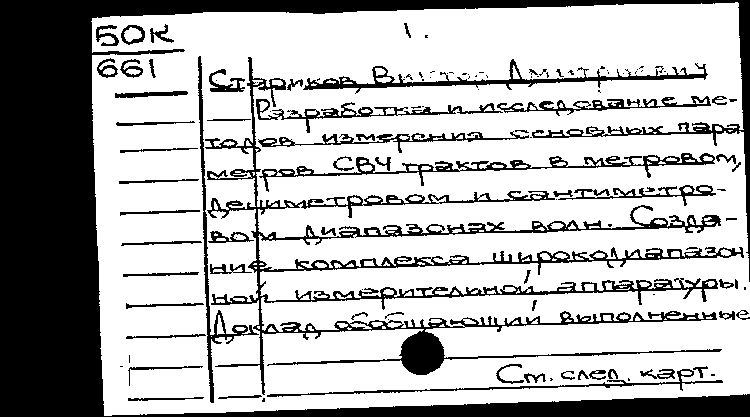 50к
661
1.
Стариков, Виктор Дмитриевич
Разработка и исследование ме-
тодов измерения основных пара
метров СВЧ трактов в метровом,
дециметровом и сантиметро-
вом диапазонах волн. Созда-
ние комплекса широкодиапазон
ной измерительной аппаратуры.
Доклад, обобщающий выполненные
См. след. карт.